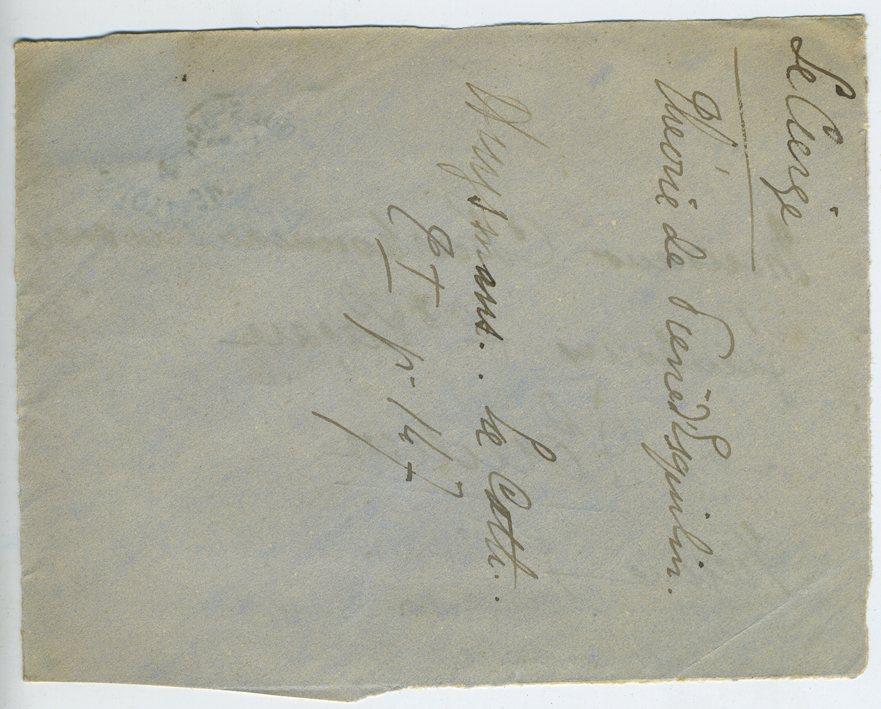 Le Cierge
d'
théorie de Pierre d'Esquilin.
Huysmans.. La Cath..
p. 147